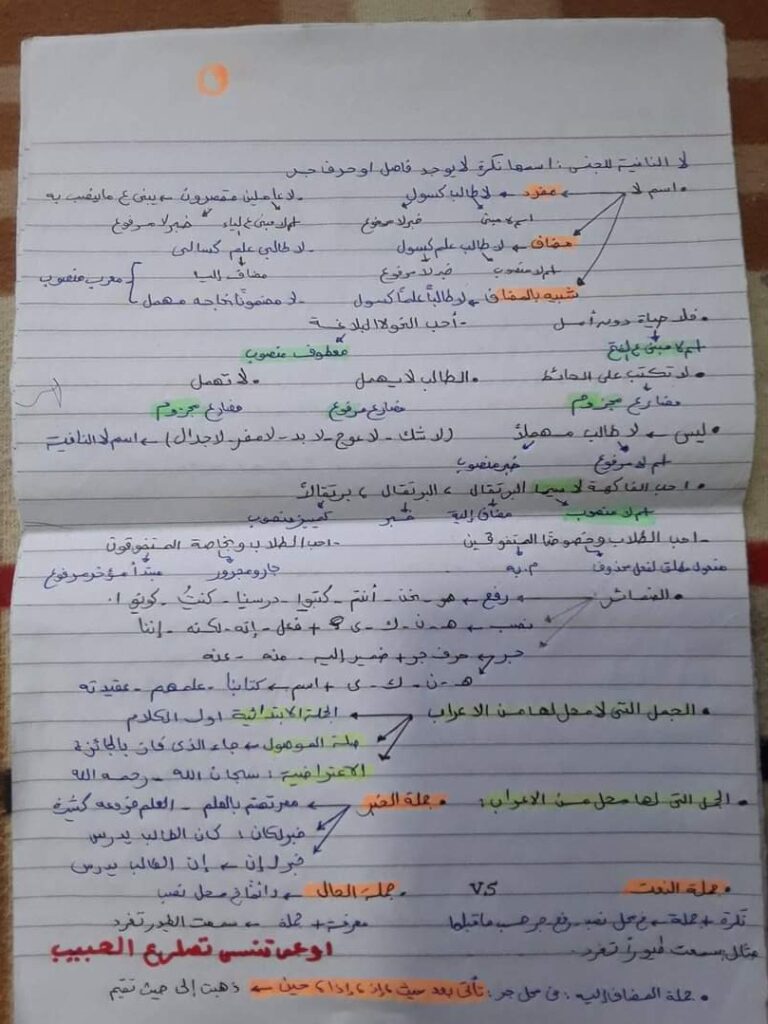 لا النافية للجنس : اسمها نكرة لا يوجد فاصل او حرف جر
• اسم لا مفرد ← لا طالب كسول - لا عاملين مقصرون ← يبنى ع ما ينصب به
اسم لا مبنى خبر لا مرفوع اسم لا مبنى ع الياء خبر لا مرفوع
مضاف ← لا طالب علم كسول - لا طالبي علم كسالى
اسم لا منصوب خبر لا مرفوع مضاف إليه معرب منصوب
شبيه بالمضاف ← لا طالباً علماً كسول لا مهمل
• فلا حياة دون أمل - أحب النحو لا البلاغة
اسم لا مبنى ع الفتح معطوف منصوب
• لا تكتب على الحائط • الطالب لا يهمل • لا تهمل
مضارع مجزوم مضارع مرفوع مضارع مجزوم
• ليس ← لا طالب مهملاً (لا شك - لا عوج - لا بد - لا مفر - لا جدال) ← اسم لا النافية
اسم لا مرفوع خبر منصوب
• احب الفاكهة لا سيما البرتقال ، البرتقال ، برتقالاً
اسم لا منصوب مضاف إلية خبر تمييز منصوب
- احب الطلاب وخصوصًا المتفوقين - احب الطلاب وبخاصة المتفوقون
مفعول مطلق لفعل محذوف م. به جار ومجرور مبتدأ مؤخر مرفوع
• الضمائر رفع ← هو - نحن - أنتم - كتبوا - درسنا - كنتُ - كونوا
نصب ← هـ - ن - ك - ى + فعل - إنه - لكنه - إننا
جر حرف جر + ضمير إليه - منه - عنه
هـ - ن - ك - ى + اسم ← كتابنا - علمهم - عقيدته
• الجمل التى لا محل لها من الاعراب ← الجملة الابتدائية اول الكلام
صلة الموصول ← جاء الذى فاز بالجائزة
الاعتراضية : سبحان الله - رحمه الله
• الجمل التى لها محل من الاعراب : • جملة الخبر ← مصر تهتم بالعلم - العلم فروعه كثيرة
خبر لكان : كان الطالب يدرس
خبر لإن ← إن الطالب يدرس
• جملة النعت VS • جملة الحال ← دائمًا فى محل نصب
نكرة + جملة ← فى محل نصب - رفع - جر حسب ما قبلها معرفة + جملة ← سمعت الطيور تغرد
مثال : سمعت طيوراً تغرد . اوعى تنسى تصلى ع الحبيب
• جملة المضاف إليه : فى محل جر : تأتى بعد حيث ، إذ ، إذا ، حين ← ذهبت إلى حيث تقيم